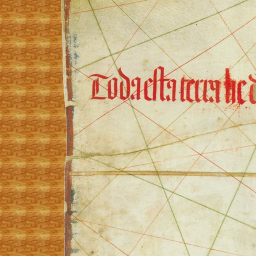 Toda esta terra he d